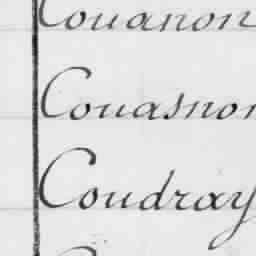 Couanon
Couasnon
Coudray